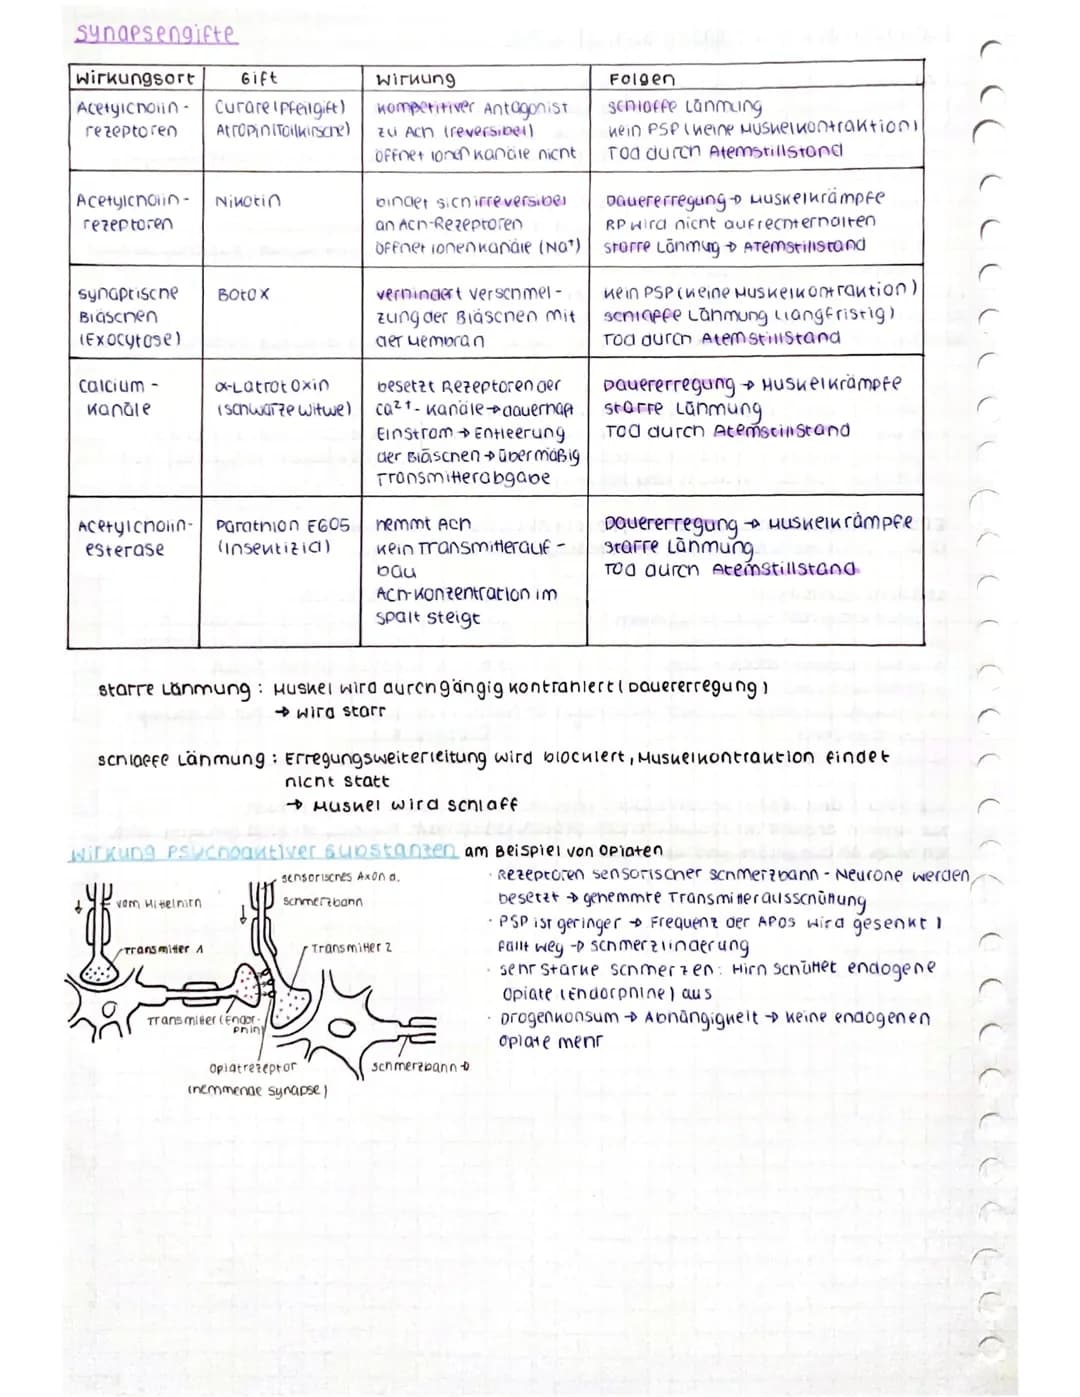 Synapsengifte
Wirkungsort Gift Wirkung Folgen
Acetylcholin- Curare (Pfeilgift) kompetitiver Antagonist schlaffe Lähmung
rezeptoren Atropin (Tollkirsche) zu Ach (reversibel) kein PSP (keine Muskelkontraktion)
öffnet Ionenkanäle nicht Tod durch Atemstillstand
Acetylcholin- Nikotin bindet sich irreversibel Dauererregung → Muskelkrämpfe
rezeptoren an Ach-Rezeptoren RP wird nicht aufrechterhalten
öffnet Ionenkanäle (Na⁺) starre Lähmug → Atemstillstand
synaptische Botox vermindert Verschmel- kein PSP (keine Muskelkontraktion)
Bläschen zung der Bläschen mit schlaffe Lähmung (langfristig)
(Exocytose) der Membran Tod durch Atemstillstand
Calcium- α-Latrotoxin besetzt Rezeptoren der Dauererregung → Muskelkrämpfe
Kanäle (schwarze Witwe) Ca²⁺-Kanäle → dauerhaft starre Lähmung
Einstrom → Entleerung Tod durch Atemstillstand
der Bläschen → übermäßig
Transmitterabgabe
Acetylcholin- Parathion E605 hemmt Ach Dauererregung → Muskelkrämpfe
esterase (Insektizid) kein Transmitterauf- starre Lähmung
bau Tod durch Atemstillstand
Ach-Konzentration im
Spalt steigt
starre Lähmung: Muskel wird durchgängig kontrahiert (Dauererregung)
→ wird starr
schlaffe Lähmung: Erregungsweiterleitung wird blockiert, Muskelkontraktion findet
nicht statt
→ Muskel wird schlaff
Wirkung psychoaktiver Substanzen am Beispiel von Opiaten
sensorisches Axon d.
Schmerzbahn
vom Mittelhirn
Transmitter 1
Transmitter 2
Transmitter (Endor-
phin)
Opiatrezeptor
(hemmende Synapse)
Schmerzbahn →
· Rezeptoren sensorischer Schmerzbahn-Neurone werden
besetzt → gehemmte Transmitterausschüttung
· PSP ist geringer → Frequenz der APOs wird gesenkt /
fällt weg → Schmerzlinderung
· sehr starke Schmerzen: Hirn schüttet endogene
Opiate (Endorphine) aus
· Drogenkonsum → Abhängigkeit → keine endogenen
Opiate mehr